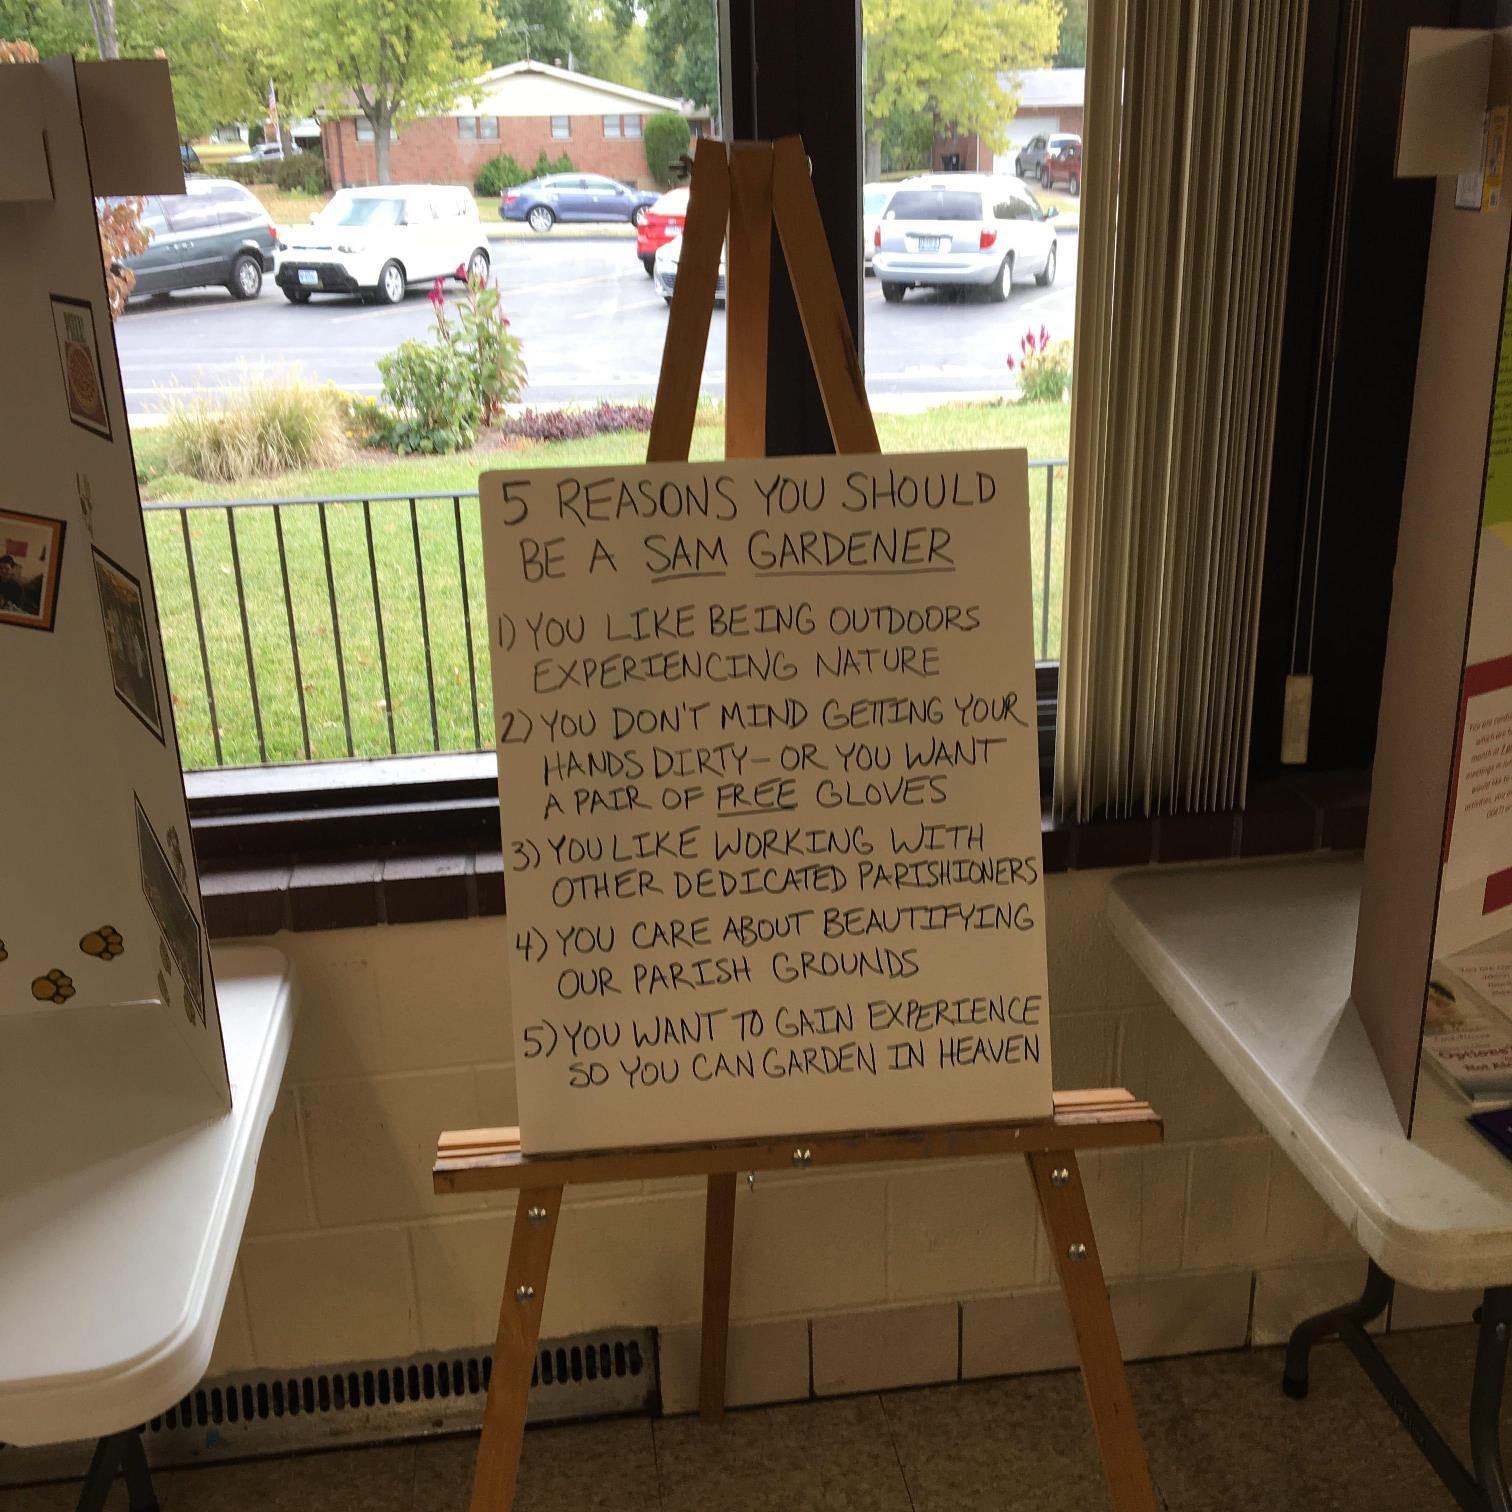 5 REASONS YOU SHOULD
BE A SAM GARDENER
1) YOU LIKE BEING OUTDOORS
EXPERIENCING NATURE
2) YOU DON'T MIND GETTING YOUR
HANDS DIRTY - OR YOU WANT
A PAIR OF FREE GLOVES
3) YOU LIKE WORKING WITH
OTHER DEDICATED PARISHIONERS
4) YOU CARE ABOUT BEAUTIFYING
OUR PARISH GROUNDS
5) YOU WANT TO GAIN EXPERIENCE
SO YOU CAN GARDEN IN HEAVEN